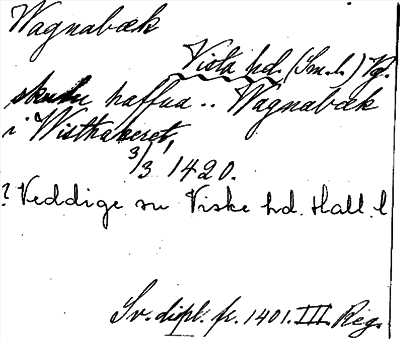 Wagnabæk
Vista hd. (Sm.l.) Vg.
skulu haffua .. Wagnabæk
i Wisthakeret,
3/3 1420.
? Veddige sn Viske hd. Hall. l
Sv. dipl. fr. 1401. III. Reg.